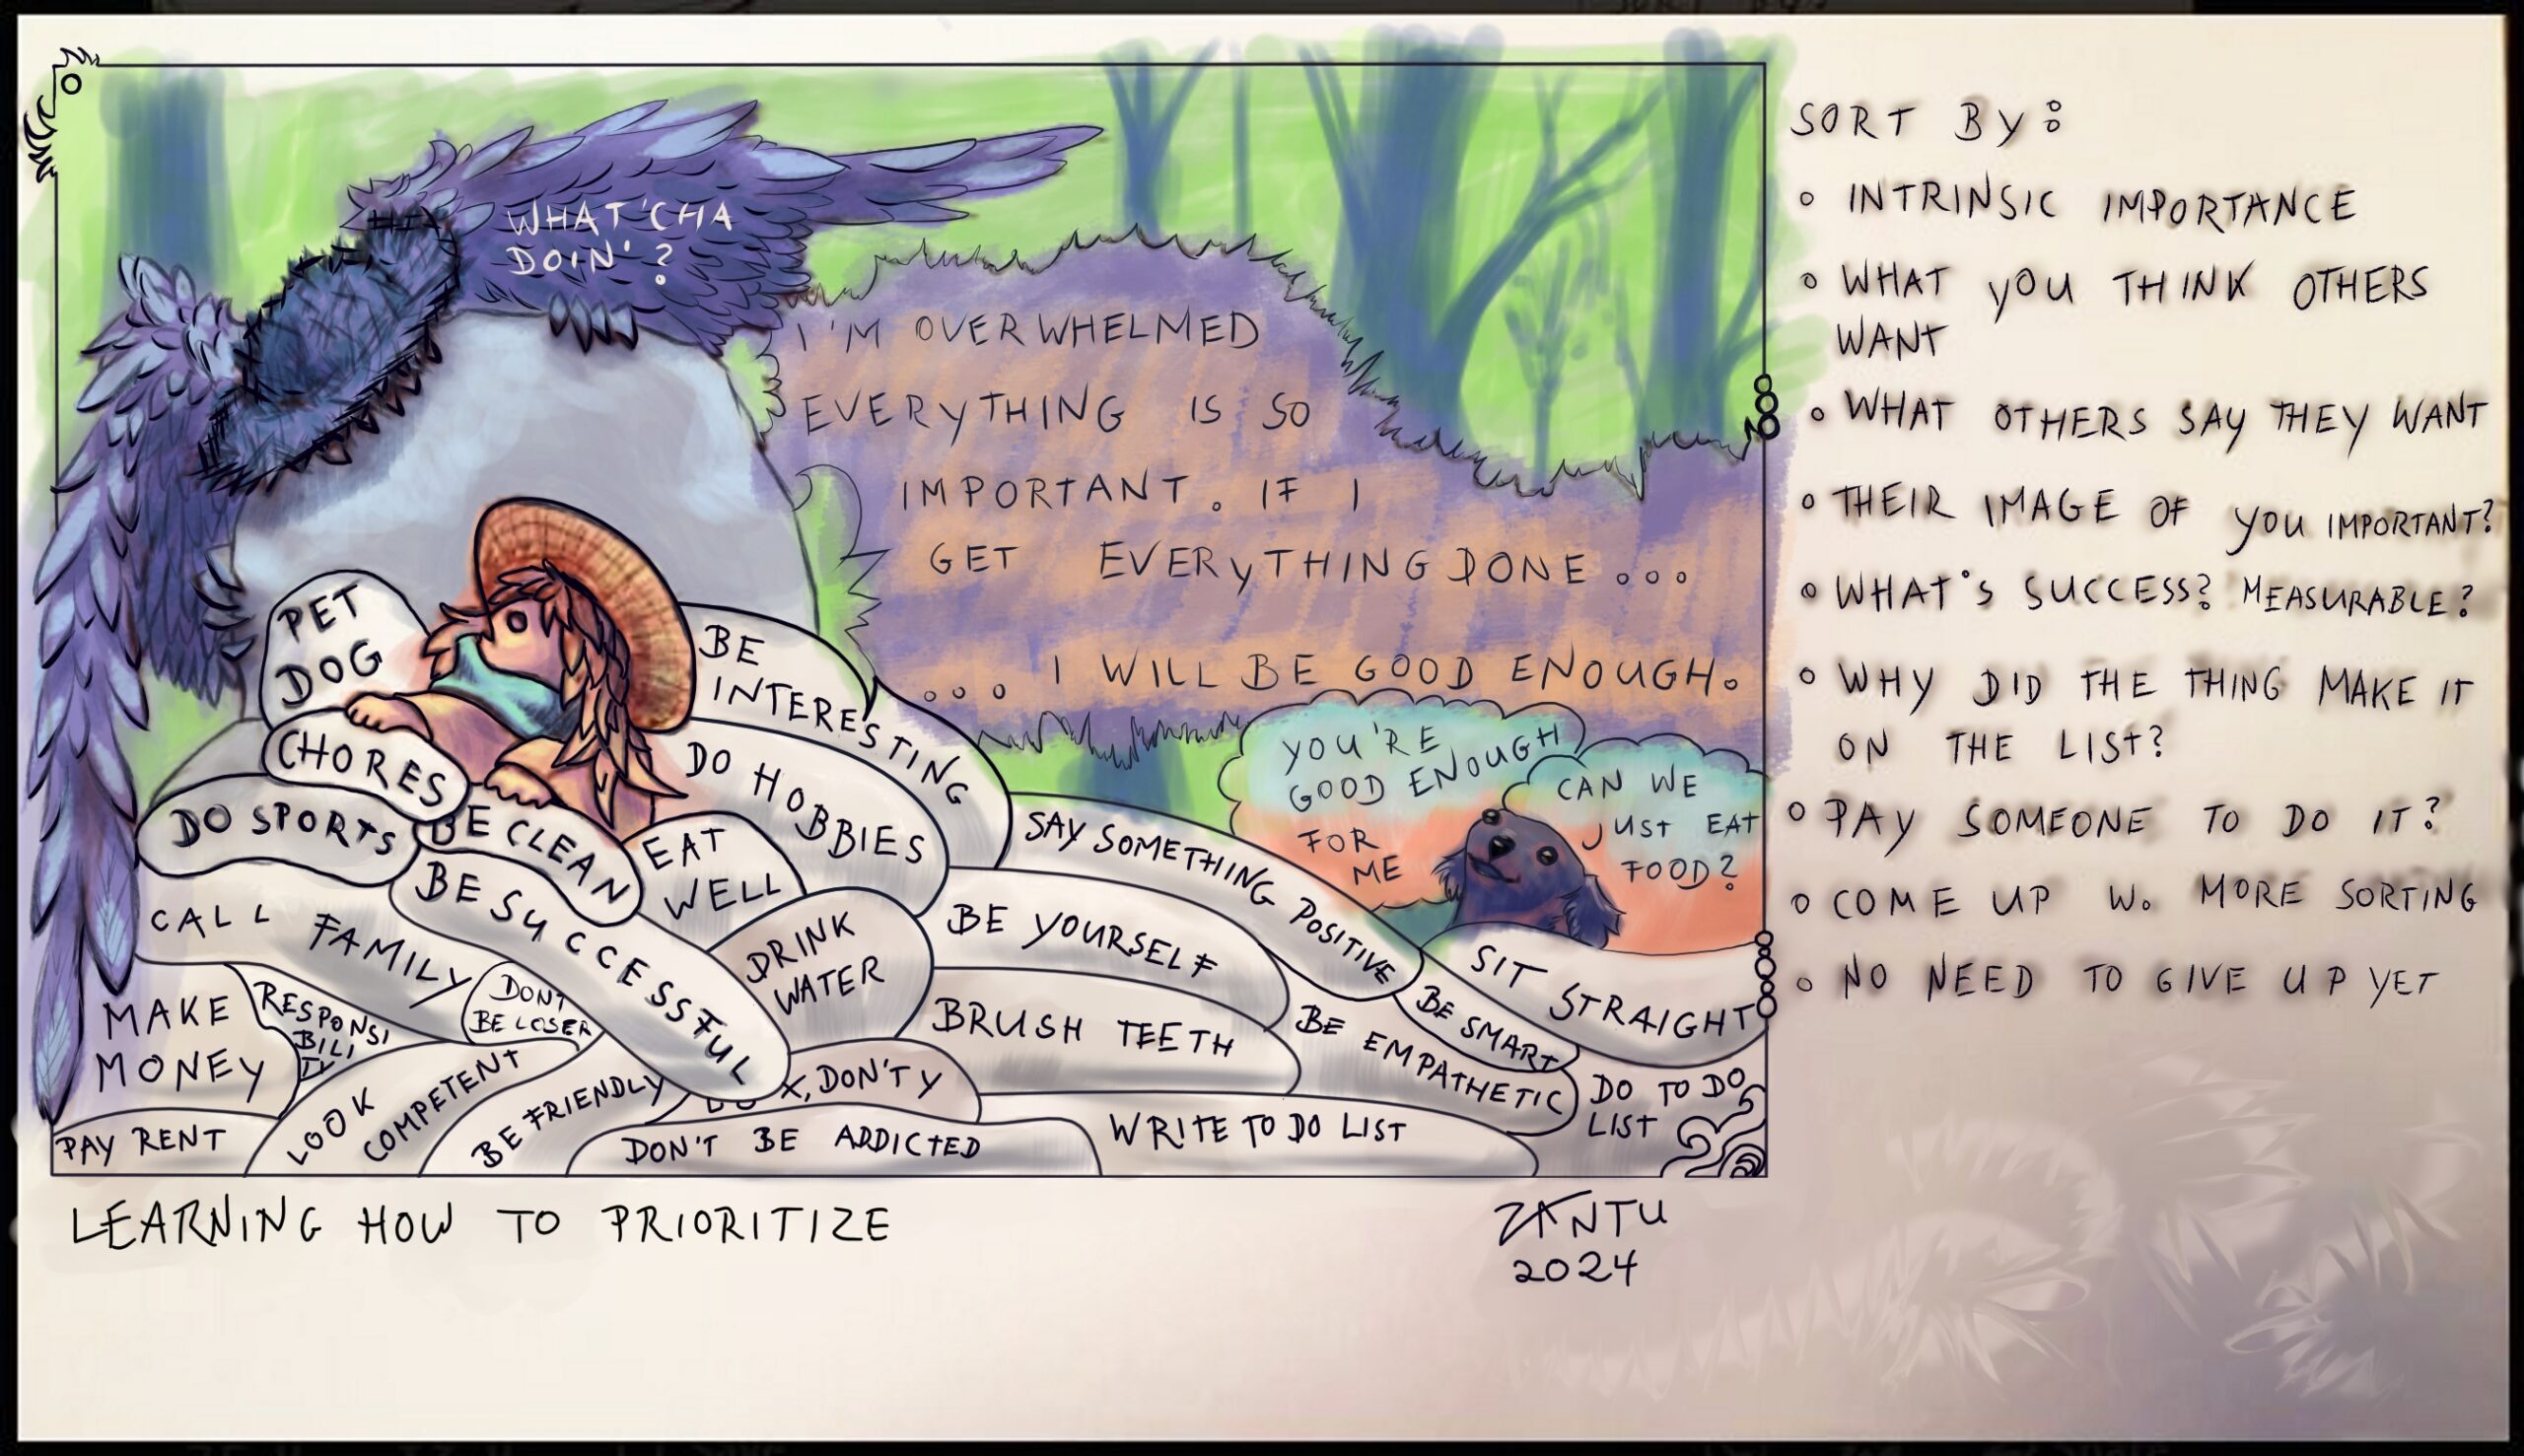 WHAT'CHA
DOIN'?
I'M OVERWHELMED
EVERYTHING IS SO
IMPORTANT. IF I
GET EVERYTHING DONE...
...I WILL BE GOOD ENOUGH.
YOU'RE
GOOD ENOUGH
FOR
ME
CAN WE
JUST EAT
FOOD?
PET
DOG
CHORES
DO SPORTS
BE CLEAN
BE
INTERESTING
DO HOBBIES
EAT
WELL
BE SUCCESSFUL
CALL FAMILY
DRINK
WATER
SAY SOMETHING POSITIVE
BE YOURSELF
SIT STRAIGHT
BE SMART
BE EMPATHETIC
BRUSH TEETH
MAKE
MONEY
RESPONSI
BILI
TY
DON'T
BE LOSER
LOOK
COMPETENT
BE FRIENDLY
X, DON'T Y
DO TO DO
LIST
PAY RENT
DON'T BE ADDICTED
WRITE TO DO LIST
LEARNING HOW TO PRIORITIZE
ZANTU
2024
SORT BY:
INTRINSIC IMPORTANCE
WHAT YOU THINK OTHERS
WANT
WHAT OTHERS SAY THEY WANT
THEIR IMAGE OF YOU IMPORTANT?
WHAT'S SUCCESS? MEASURABLE?
WHY DID THE THING MAKE IT
ON THE LIST?
PAY SOMEONE TO DO IT?
COME UP W. MORE SORTING
NO NEED TO GIVE UP YET